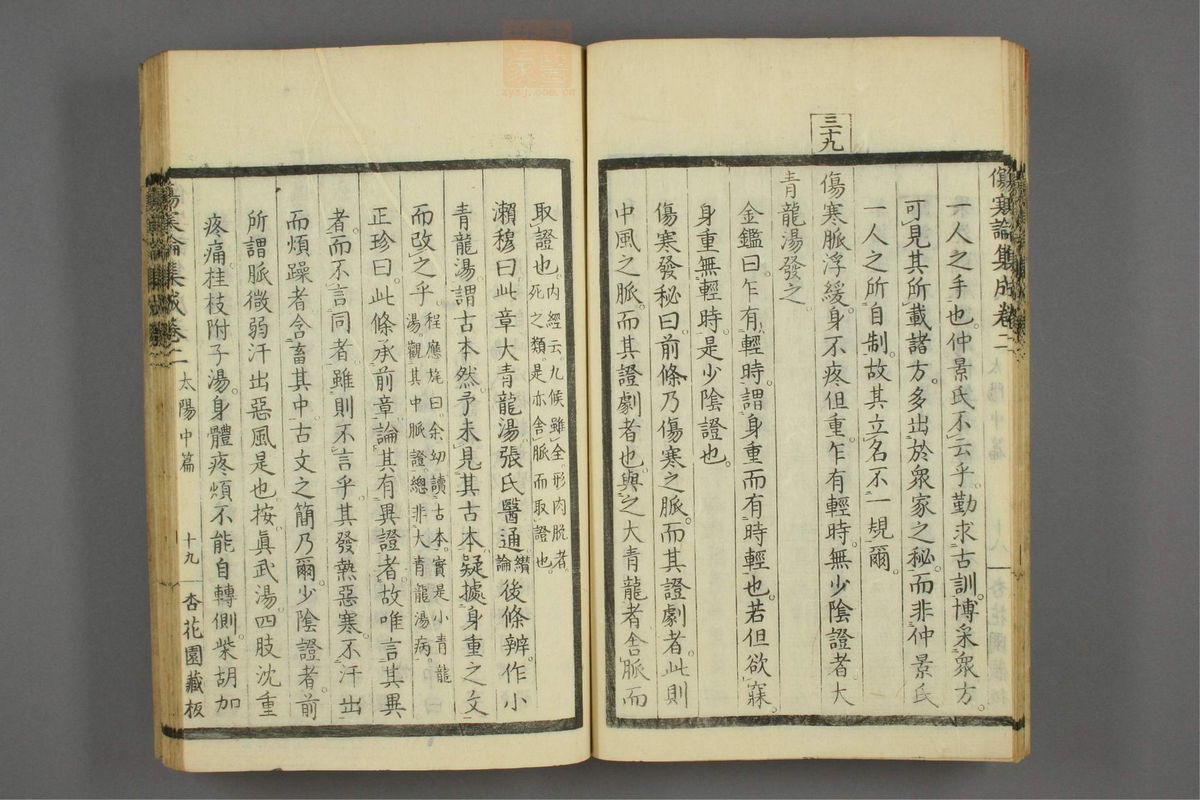 三十九
傷寒論集成卷二
一人之手也。仲景氏不云乎。勤求古訓。博采衆方。
可見其所載諸方。多出於衆家之秘。而非仲景氏
一人之所自制。故其立名不一規爾。
傷寒脈浮緩。身不疼但重。乍有輕時。無少陰證者。大
青龍湯發之。
金鑑曰。乍有輕時。謂身重而有時輕也。若但欲寐。
身重無輕時。是少陰證也。
傷寒發秘曰。前條乃傷寒之脈。而其證劇者。此則
中風之脈。而其證劇者也。與之大青龍者。舍脈而
取證也。內經云。九候雖全。形肉脫者。
死之類。是亦舍脈而取證也。
瀨穆曰。此章大青龍湯。張氏醫通纘論後條辨。作小
青龍湯。謂古本然。予未見其古本。疑據身重之文
而改之乎。程應旄曰。余幼讀古本。實是小青龍
湯。觀其中脈證。總非大青龍湯病。
正珍曰。此條承前章。論其有異證者。故唯言其異
者。而不言同者。雖則不言乎。其發熱惡寒。不汗出
而煩躁者。含畜其中。古文之簡乃爾。少陰證者。前
所謂脈微弱。汗出惡風是也。按。眞武湯。四肢沈重
疼痛。桂枝附子湯。身體疼煩。不能自轉側。柴胡加
傷寒論集成卷二 太陽中篇 十九 杏花園藏板